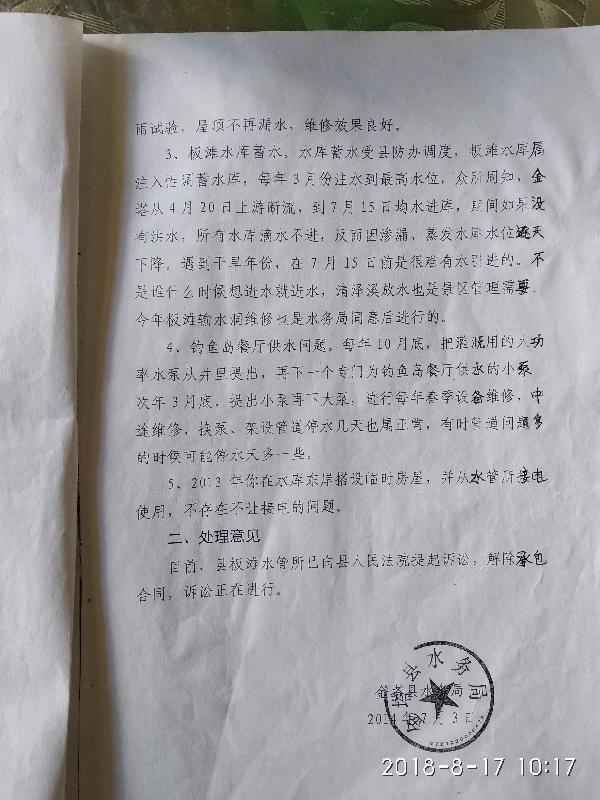 雨试验，屋顶不再漏水，维修效果良好。
3、板滩水库蓄水，水库蓄水受县防办调度，板滩水库属
注入式蓄水库，每年3月份注水到最高水位，众所周知，金
塔从4月20日上游断流，到7月15日均水进库，期间如果没
有洪水，所有水库滴水不进，反而因渗漏、蒸发水库水位逐天
下降。遇到干旱年份，在7月15日前是很难有水引进的。不
是谁什么时候想进水就进水，清泽溪放水也是景区管理需要。
今年板滩输水洞维修也是水务局同意后进行的。
4、钓鱼岛餐厅供水问题。每年10月底，把灌溉用的大功
率水泵从井里提出，再下一个专门为钓鱼岛餐厅供水的小泵
次年3月底，提出小泵再下大泵，进行每年春季设备维修，中
途维修、换泵、架设管道停水几天也属正常，有时管道问题多
的时候可能停水天多一些。
5、2013年你在水库东岸搭设临时房屋，并从水管所接电
使用，不存在不让接电的问题。
二、处理意见
目前，县板滩水管所已向县人民法院提起诉讼，解除承包
合同，诉讼正在进行。
金塔县水务局
2014年7月3日
2018-8-17 10:17